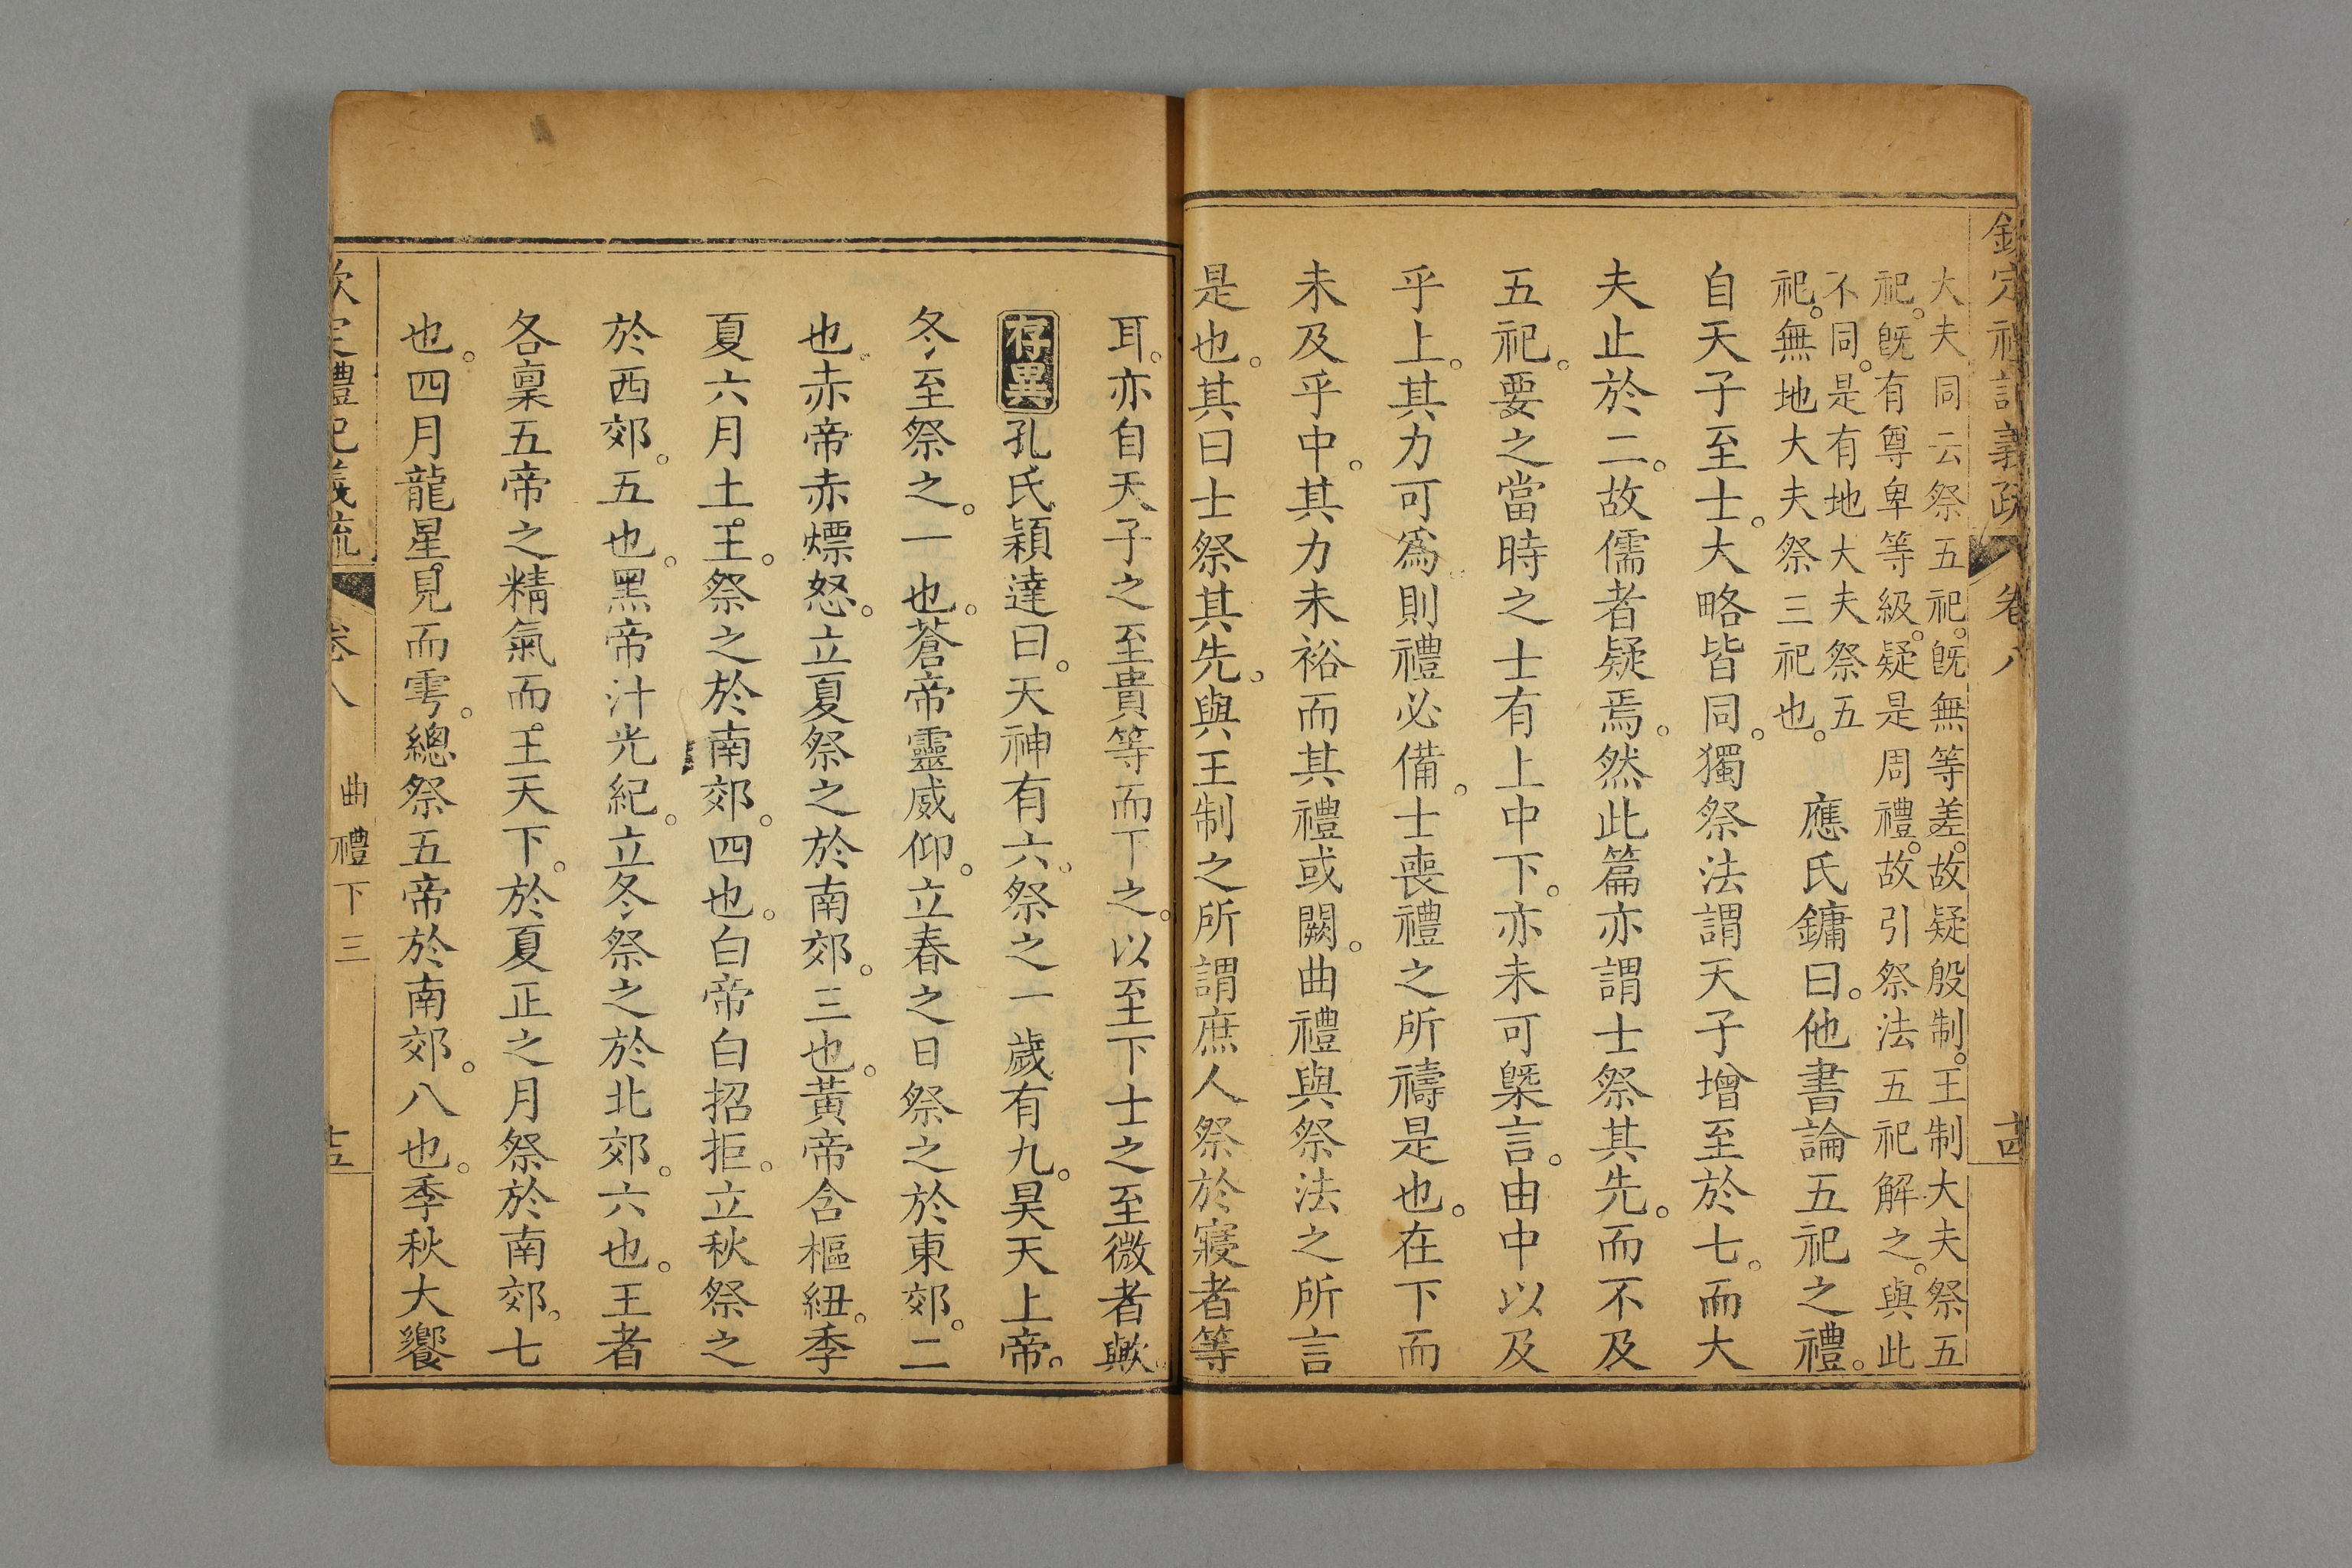 欽定禮記義疏 卷八 十四
大夫同云祭五祀。旣無等差。故疑殷制。王制大夫祭五
祀。旣有尊卑等級。疑是周禮。故引祭法五祀解之。與此
不同。是有地大夫祭五
祀。無地大夫祭三祀也。
應氏鏞曰。他書論五祀之禮。
自天子至士。大略皆同。獨祭法謂天子增至於七。而大
夫止於二。故儒者疑焉。然此篇亦謂士祭其先。而不及
五祀。要之當時之士有上中下。亦未可槩言。由中以及
乎上。其力可爲。則禮必備。士喪禮之所禱是也。在下而
未及乎中。其力未裕而其禮或闕。曲禮與祭法之所言
是也。其曰士祭其先。與王制之所謂庶人祭於寢者等
耳。亦自天子之至貴等而下之。以至下士之至微者歟。
存異 孔氏穎達曰。天神有六。祭之一歲有九。昊天上帝。
冬至祭之。一也。蒼帝靈威仰。立春之日祭之於東郊。二
也。赤帝赤熛怒。立夏祭之於南郊。三也。黃帝含樞紐。季
夏六月土王。祭之於南郊。四也。白帝白招拒。立秋祭之
於西郊。五也。黑帝汁光紀。立冬祭之於北郊。六也。王者
各稟五帝之精氣而王天下。於夏正之月祭於南郊。七
也。四月龍星見而雩。總祭五帝於南郊。八也。季秋大饗
欽定禮記義疏 卷八 曲禮下三 十五